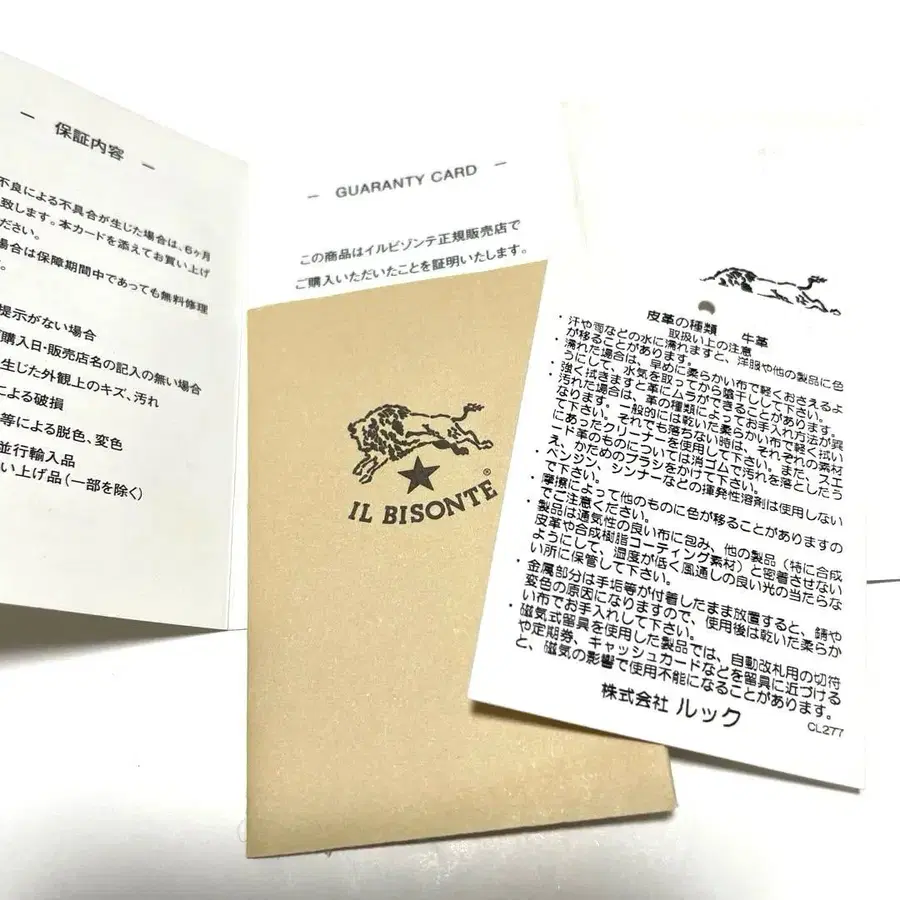 - 保証内容 -
不良による不具合が生じた場合は、6ヶ月
致します。本カードを添えてお買い上げ
ださい。
場合は保障期間中であっても無料修理
す。
提示がない場合
購入日・販売店名の記入の無い場合
生じた外観上のキズ、汚れ
による破損
等による脱色、変色
並行輸入品
い上げ品(一部を除く)
- GUARANTY CARD -
この商品はイルビゾンテ正規販売店で
ご購入いただいたことを証明いたします。
IL BISONTE®
皮革の種類 牛革
取扱い上の注意
・汗や雨などの水に濡れますと、洋服や他の製品に色
が移ることがあります。
・濡れた場合は、早めに柔らかい布で軽くおさえるよ
うにして、水気を取ってから陰干しして下さい。
強く拭きますと革にムラができることがあります。
・汚れた場合は、革の種類によってお手入れ方法が異
なります。一般的には乾いた柔らかい布で軽く拭い
て下さい。それでも落ちない時は、それぞれの素材
にあったクリーナーを使用して下さい。また、スエ
ード革のものについては消ゴムで汚れを落としたう
え、かためのブラシをかけて下さい。
・ベンジン、シンナーなどの揮発性溶剤は使用しない
で下さい。
・摩擦によって他のものに色が移ることがありますの
でご注意ください。
・製品は通気性の良い布に包み、他の製品(特に合成
皮革や合成樹脂コーティング素材)と密着させない
ようにして、湿度が低く風通しの良い光の当たらな
い所に保管して下さい。
・金属部分は手垢等が付着したまま放置すると、錆や
変色の原因になりますので、使用後は乾いた柔らか
い布でお手入れして下さい。
・磁気式留具を使用した製品では、自動改札用の切符
や定期券、キャッシュカードなどを留具に近づける
と、磁気の影響で使用不能になることがあります。
株式会社 ルック
CL277